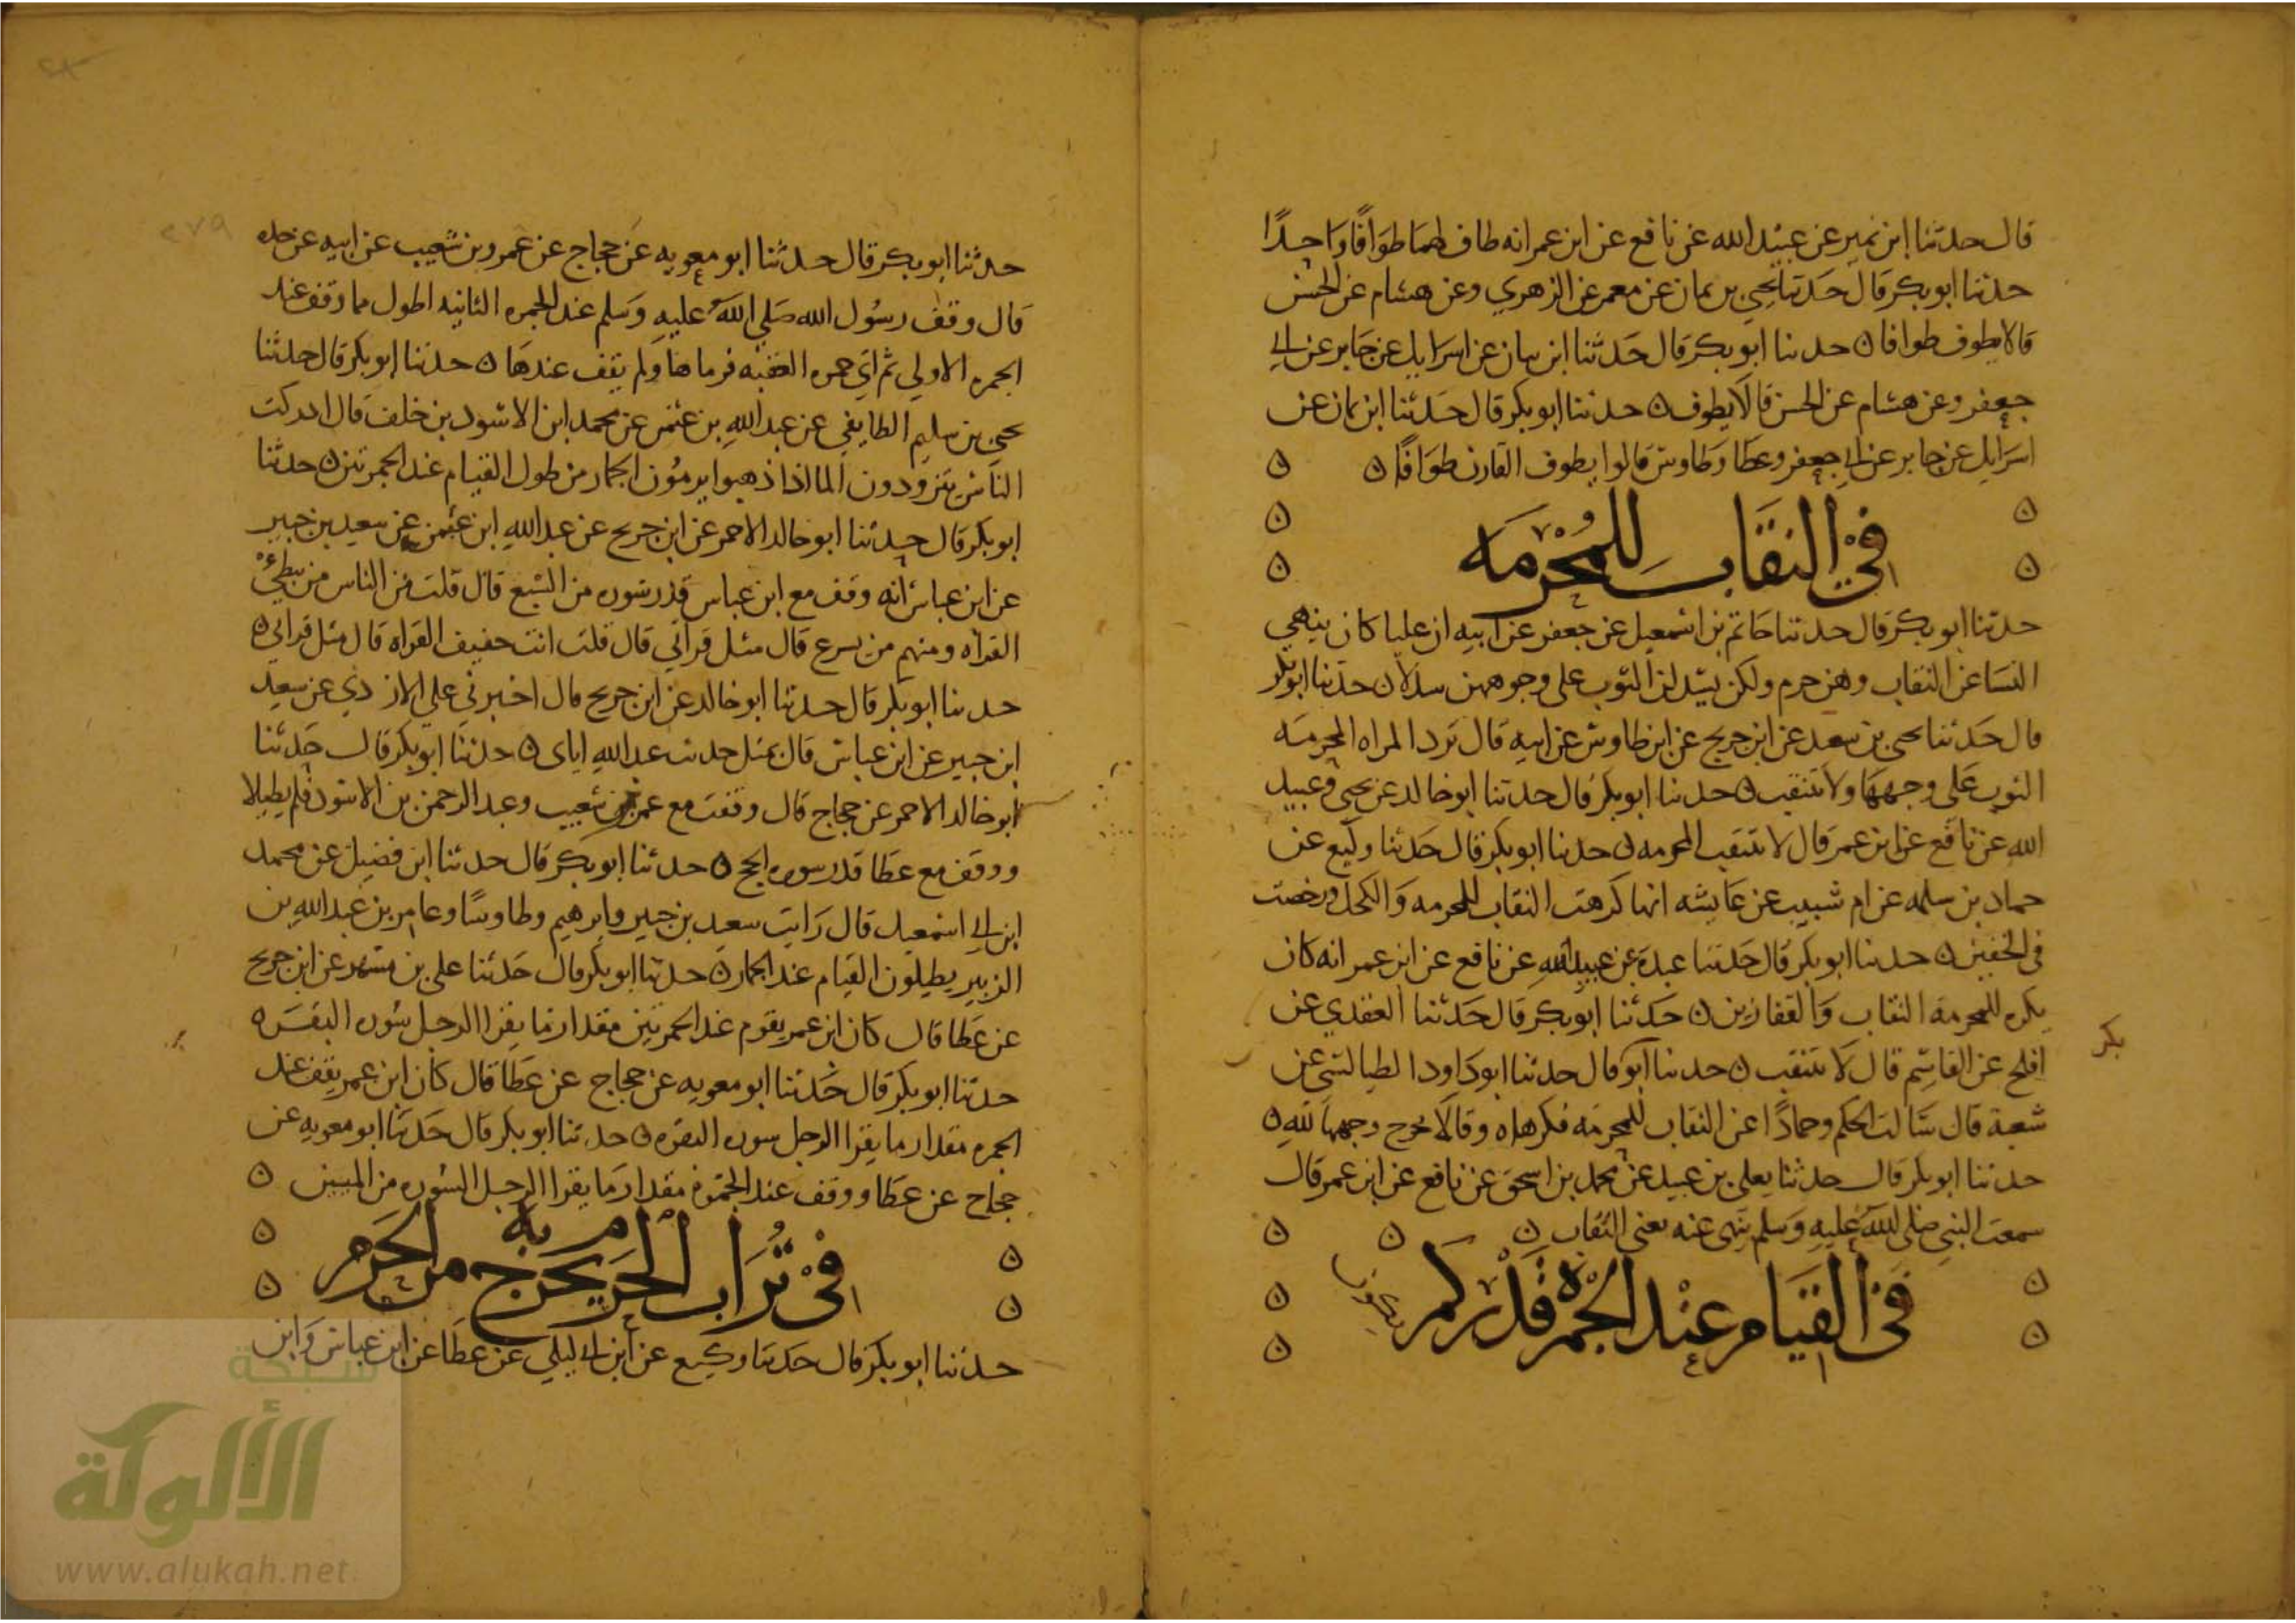 قال حدثنا ابن نمير عن عبيد الله عن نافع عن ابن عمر انه طاف لهما طوافا واحدا
حدثنا ابو بكر قال حدثنا يحيى بن يمان عن معمر عن الزهري وعن هشام عن الحسن
قالا يطوف طوافا ن حدثنا ابو بكر قال حدثنا ابن يمان عن اسرايل عن جابر عن ابي
جعفر وعن هشام عن الحسن قالا يطوف ن حدثنا ابو بكر قال حدثنا ابن يمان عن
اسرايل عن جابر عن ابي جعفر وعطا وطاوس قالوا يطوف القارن طوافا ن
في النقاب للمحرمه
حدثنا ابو بكر قال حدثنا حاتم بن اسمعيل عن جعفر عن ابيه ان عليا كان ينهي
النسا عن النقاب وهن حرم ولكن يسدلن الثوب على وجوههن سدلا ن حدثنا ابو بكر
قال حدثنا يحيى بن سعيد عن ابن جريج عن ابن طاوس عن ابيه قال ترد المراه المحرمه
الثوب على وجهها ولا تنتقب ن حدثنا ابو بكر قال حدثنا ابو خالد عن يحيى وعبيد
الله عن نافع عن ابن عمر قال لا تنتقب المحرمه ن حدثنا ابو بكر قال حدثنا وكيع عن
حماد بن سلمه عن ام شبيب عن عايشه انها كرهت النقاب للمحرمه والكحل ورخصت
في الخفين ن حدثنا ابو بكر قال حدثنا عبدة عن عبيد الله عن نافع عن ابن عمر انه كان
يكره للمحرمة النقاب والقفازين ن حدثنا ابو بكر قال حدثنا العقدي عن
افلح عن القاسم قال لا تنتقب ن حدثنا ابو قال حدثنا ابو داود الطيالسي عن
بكر
شعبة قال سالت الحكم وحمادا عن النقاب للمحرمه فكرهاه وقالا تخرج وجهها لله ن
حدثنا ابو بكر قال حدثنا يعلى بن عبيد عن محمد بن اسحق عن نافع عن ابن عمر قال
سمعت النبي صلى الله عليه وسلم ينهى عنه يعني النقاب ن
في القيام عند الجمرة قدر كم
حدثنا ابو بكر قال حدثنا ابو معويه عن حجاج عن عمرو بن شعيب عن ابيه عن جده
قال وقف رسول الله صلي الله عليه وسلم عند الجمره الثانيه اطول مما وقف عند
الجمره الاولي ثم اتي جمره العقبه فرماها ولم يقف عندها ن حدثنا ابو بكر قال حدثنا
يحيى بن سليم الطايفي عن عبد الله بن عثمن عن محمد ابن الاسود بن خلف قال ادركت
الناس يتزودون الما اذا ذهبوا يرمون الجمار من طول القيام عند الجمرتين ن حدثنا
ابو بكر قال حدثنا ابو خالد الاحمر عن ابن جريح عن عبد الله ابن عثمن عن سعيد بن جبير
عن ابن عباس انه وقف مع ابن عباس قدر سوره من السبع قال قلت من الناس من يبطئ
القراه ومنهم من يسرع قال مثل قراتي قال قلت انت خفيف القراه قال مثل قراتي ن
حدثنا ابو بكر قال حدثنا ابو خالد عن ابن جريج قال اخبرني علي الازدي عن سعيد
ابن جبير عن ابن عباس قال بمثل حديث عبد الله اياى ن حدثنا ابو بكر قال حدثنا
ابو خالد الاحمر عن حجاج قال وقفت مع عمرو بن شعيب وعبد الرحمن بن الاسود فلم يطيلا
ووقف مع عطا قدر سوره الحج ن حدثنا ابو بكر قال حدثنا ابن فضيل عن محمد
ابن ابي اسمعيل قال رايت سعيد بن جبير وابرهيم وطاوسا وعامر بن عبد الله بن
الزبير يطيلون القيام عند الجمار ن حدثنا ابو بكر قال حدثنا علي بن مسهر عن ابن جريح
عن عطا قال كان ابن عمر يقوم عند الجمرتين مقدار ما يقرا الرجل سوره البقره
حدثنا ابو بكر قال حدثنا ابو معويه عن حجاج عن عطا قال كان ابن عمر يقف عند
الجمره مقدار ما يقرا الرجل سوره البقره ن حدثنا ابو بكر قال حدثنا ابو معويه عن
حجاج عن عطا ووقف عند الجمره مقدار ما يقرا الرجل السوره من المييين
في تراب الحرم يخرج به من الحرم
حدثنا ابو بكر قال حدثنا وكيع عن ابن ابي ليلي عن عطا عن ابن عباس وابن
شبكة
الألوكة
www.alukah.net